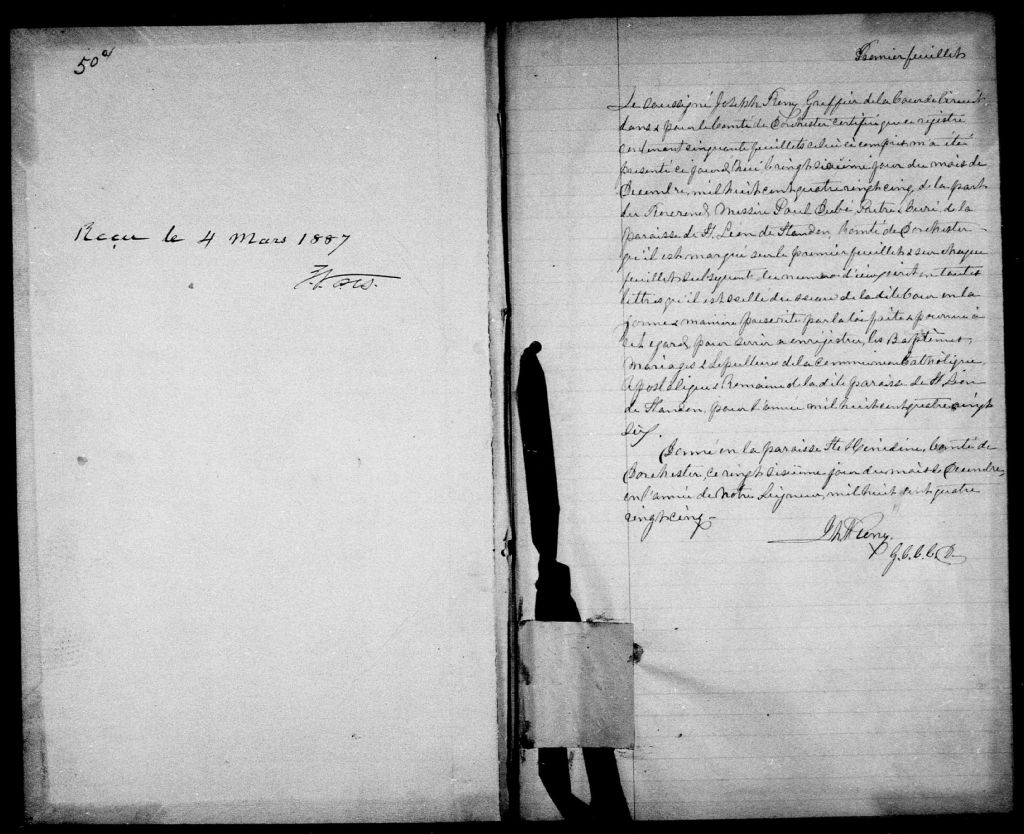 50a
Reçu le 4 Mars 1887
Premier feuillet
Le soussigné Joseph Remy Greffier de la Cour de Circuit
dans & pour le Comté de Dorchester certifie que ce régistre
contenant cinquante feuillets celui ci compris m'a été
présenté ce jourd'hui vingt sixième jour du mois de
Decembre, mil huit cent quatre vingt cinq, de la part
du Reverend Messire Paul Dubé Prêtre Curé, de la
paroisse de St. Léon de Standon, Comté de Dorchester –
qu'il est marqué sur le premier feuillet & sur chaque
feuillet subsequent, du numero d'iceux écrit en toutes
lettres qu'il est scellé du sceau de la dite Cour en la
forme & manière prescrite par la loi faite & pourvue à
cet egard, pour servir a enregistrer, les Baptêmes,
Mariages & Sepultures de la communion Catholique,
Apostolique & Romaine de la dite paroisse de St Léon
de Standon, pour l'année mil huit cent quatre vingt
six.
Donné en la paroisse Ste Hénédine, Comté de
Dorchester, ce vingt sixième jour du mois de Decembre,
en l'année de Notre Seigneur, mil huit cent quatre
vingt cinq –
G.C.C.C.D.